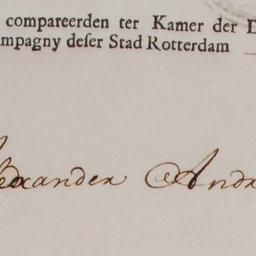 compareerden ter Kamer der D
mpagny deſer Stad Rotterdam
lexander Andr